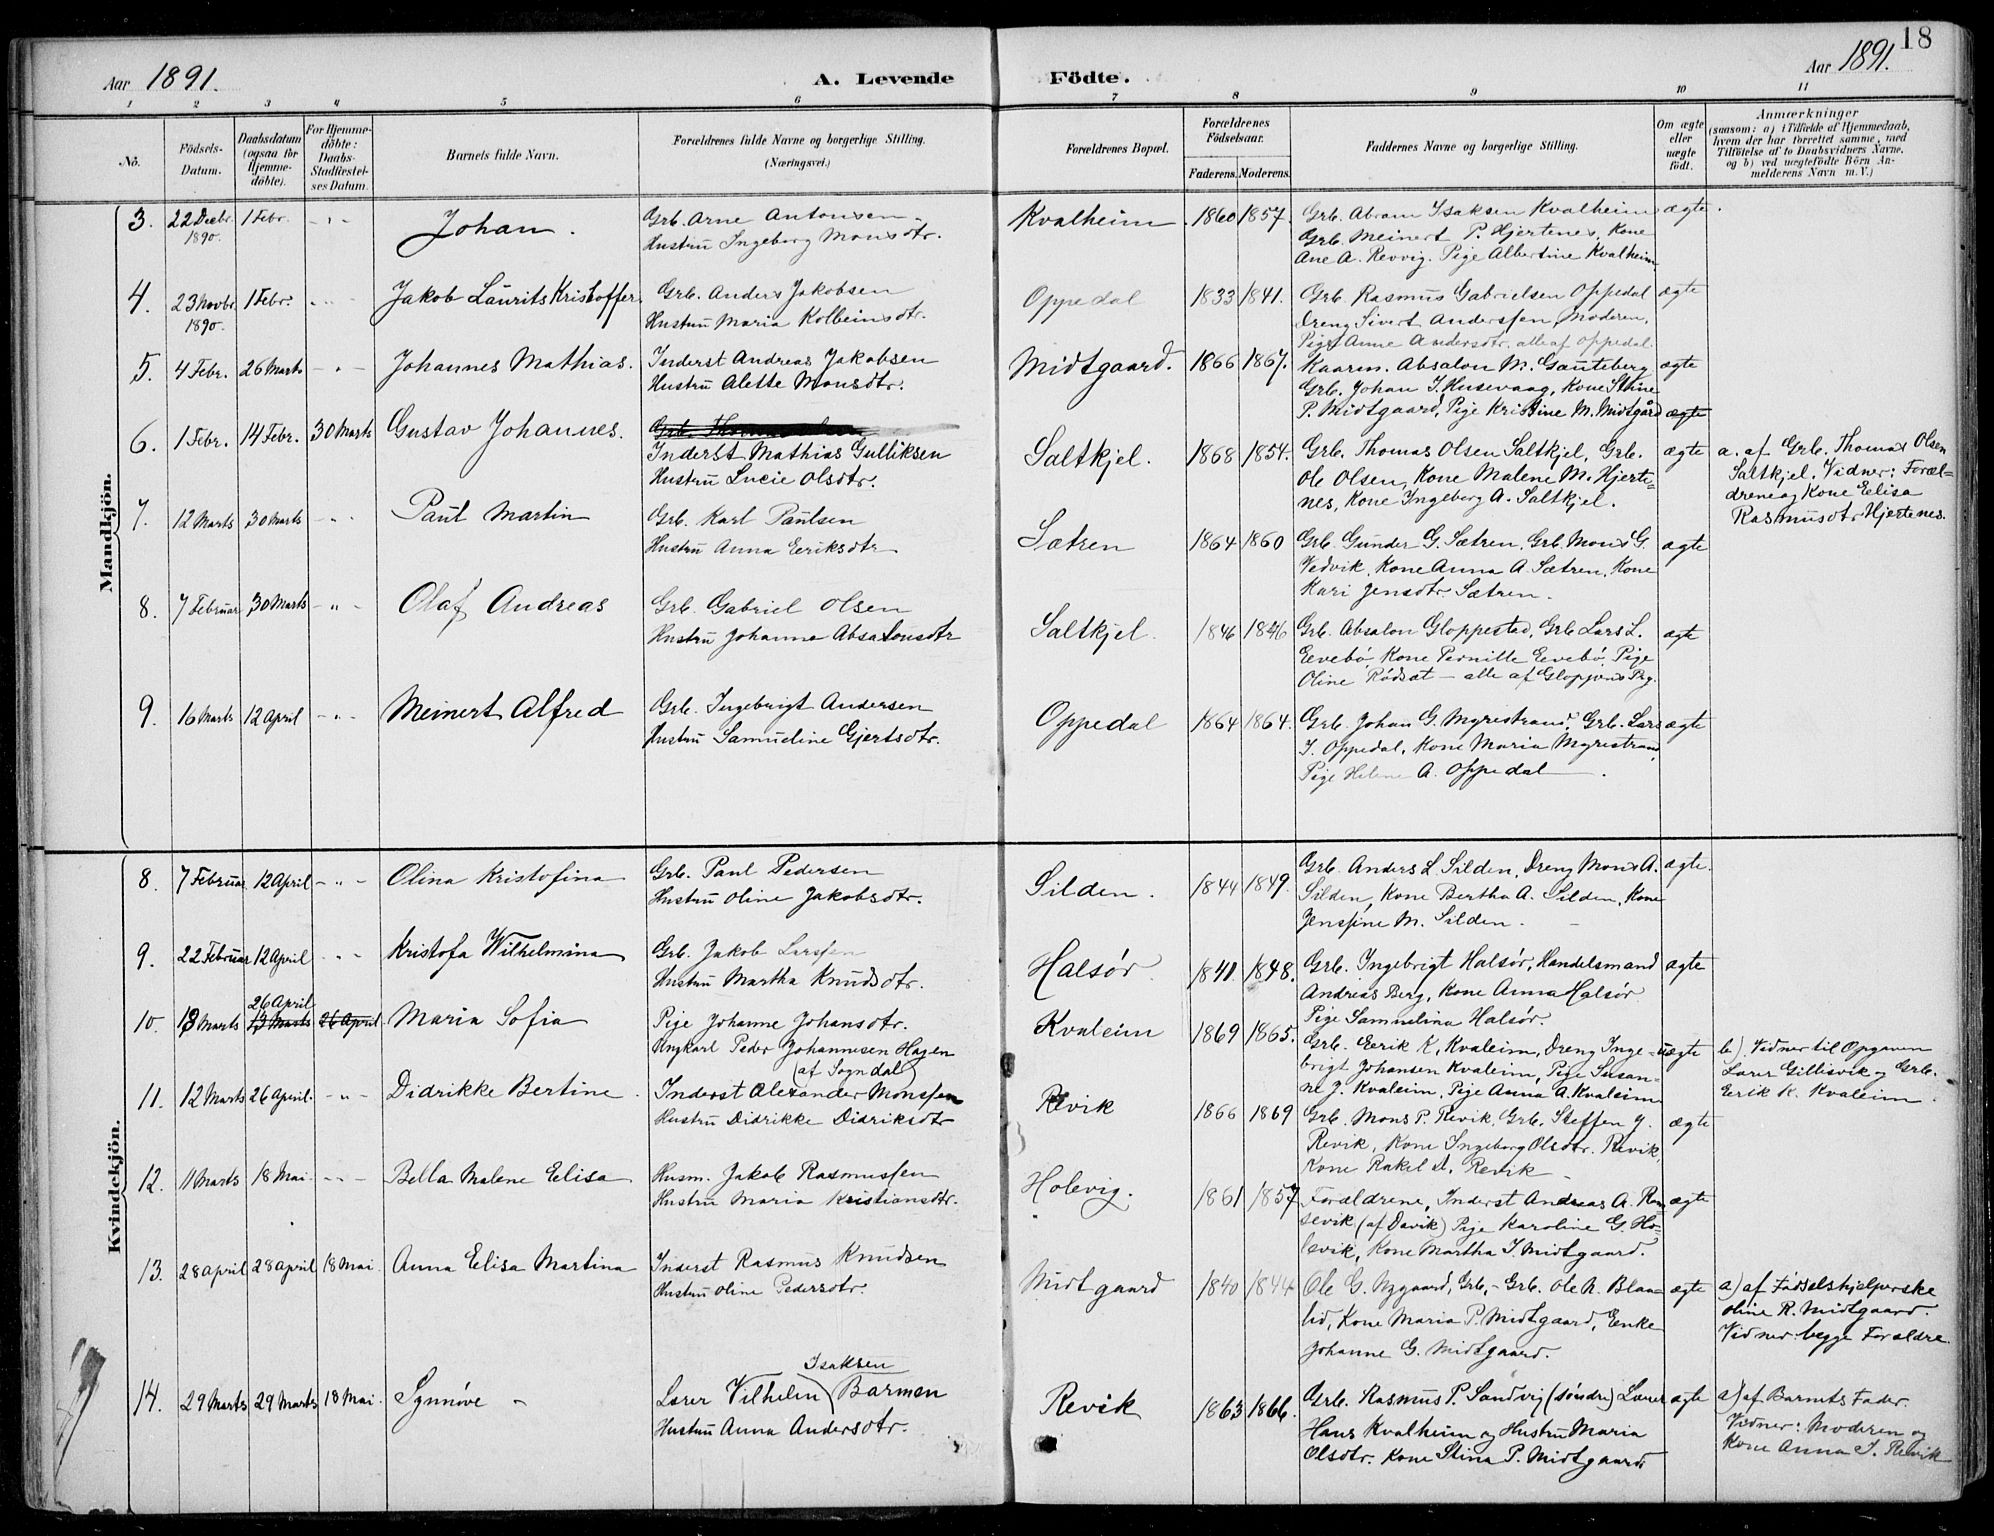 18
Aar 1891.
A. Levende
Födte.
Aar 1891.
1 2 3 4 5 6 7 8 9 10 11
No.
Födsels-
Datum.
Daabsdatum
(ogsaa för
Hjemme-
döbte).
For Hjemme-
döbte:
Daabs-
Stadfæstel-
ses Datum.
Barnets fulde Navn.
Forældrenes fulde Navne og borgerlige Stilling.
(Næringsvei.)
Forældrenes Bopæl.
Forældrenes
Födselsaar.
Faderens. Moderens.
Faddernes Navne og borgerlige Stilling.
Om ægte
eller
uægte
födt.
Anmærkninger
(saasom: a) i Tilfælde af Hjemmedaab,
hvem der har forrettet samme, med
Tilföielse af to Daabsvidners Navne,
og b) ved uægtefödte Börn An-
melderens Navn m. V.)
Mandkjön.
3. 22 Decbr. 1890. 1 Febr. - " - Johan.
Grb. Arne Antonsen
Hustru Ingeborg Monsdtr.
Kvalheim. 1860 1857.
Grb. Abram Isaksen Kvalheim
Grb. Meinert P. Hjertenes, Kone
Ane A. Revvig. Pige Albertine Kvalheim
ægte
4. 23 Novbr. 1890. 1 Febr. Jakob Laurits Kristoffer
Grb. Anders Jakobsen
Hustru Maria Kolbeinsdtr.
Oppedal 1833 1841.
Grb. Rasmus Gabrielsen Oppedal
Dreng Sivert Anderssen, Moderen,
Pige Anne Andersdtr. alle af Oppedal.
ægte
5. 4 Febr. 26 Marts - " - Johannes Mathias.
Inderst Andreas Jakobsen
Hustru Alette Monsdtr.
Midtgaard. 1866 1867.
Kaarm. Absalon M. Gauteberg
Grb. Johan I. Husevaag, Kone Stine
P. Midtgaard, Pige Kristine M. Midtgård
ægte
ægte
6. 1 Febr. 14 Febr. 30 Marts Gustav Johannes.
Inderst Mathias Gulliksen
Hustru Lucie Olsdtr.
Saltkjel. 1868 1854.
Grb. Thomas Olsen Saltkjel, Grb.
Ole Olsen, Kone Malene M. Hjerte-
nes, Kone Ingeborg A. Saltkjel.
ægte
a. af Grb. Thomas Olsen
Saltkjel. Vidner: Foræl-
drene og Kone Elisa
Rasmusdtr Hjertenes.
7. 12 Marts 30 Marts - " - Paul Martin
Grb. Karl Paulsen
Hustru Anna Eeriksdtr
Sætren 1864 1860
Grb. Gunder G. Sætren, Grb. Mons G.
Vedvik, Kone Anna A. Sætren, Kone
Kari Jensdtr. Sætren.
ægte
8. 7 Februar 30 Marts - " - Olaf Andreas
Grb. Gabriel Olsen
Hustru Johanne Absalonsdtr
Saltkjel. 1846 1846
Grb. Absalon Gloppestad, Grb Lars L.
Eevebö, Kone Pernille Eevebö, Pige
Oline Rödsæt - alle af Gloppens Pg.
ægte
9. 16 Marts 12 April - " - Meinert Alfred
Grb. Ingebrigt Andersen
Hustru Samuline Gjertsdtr.
Oppedal 1864 1864.
Grb. Johan G. Myrestrand, Grb. Lars
I. Oppedal, Kone Maria Myrestrand,
Pige Helene A. Oppedal.
ægte
Kvindekjön.
8. 7 Februar 12 April - " - Olina Kristofina
Grb. Paul Pedersen
Hustru Oline Jakobsdtr.
Silden. 1844 1849.
Grb. Anders L. Silden, Dreng Mons A.
Silden, Kone Bertha A. Silden, Kone
Jensine M. Silden.
ægte.
9. 22 Februar 12 April - " - Kristofa Wilhelmina
Grb. Jakob Larssen
Hustru Martha Knudsdtr.
Halsör. 1841 1848.
Grb. Ingebrigt Halsör, Handelsmand
Andreas Berg, Kone Anna Halsör
Pige Samuelina Halsör.
ægte
10. 13 Marts 26 April 13 Marts 26 April Maria Sofia
Pige Johanne Johansdtr.
Ungkarl Peder Johannesen Hagen
(af Sogndal)
Kvaleim 1869 1865.
Grb. Eerik K. Kvaleim, Dreng Inge-
brigt Johansen Kvaleim, Pige Susan-
ne J. Kvaleim, Pige Anna A. Kvaleim
uægte
b.) Vidner til Opgaven
Lærer Gillisvik og Grb.
Eerik K. Kvaleim.
11. 12 Marts 26 April. - " - Didrikke Bertine
Inderst Alexander Monssen
Hustru Didrikke Didriksdtr
Revik 1866 1869
Grb. Mons P. Revik, Grb. Steffen J.
Revik, Kone Ingeborg Olsdtr. Revik,
Kone Rakel A. Revik
ægte
12. 11 Marts 18 Mai. - " - Bella Malene Elisa
Husm. Jakob Rasmussen
Hustru Maria Kristiansdtr.
Holevig. 1861 1857
Forældrene, Inderst Andreas A. Ram-
sevik (af Davik) Pige Karoline G. Ho-
levik, Kone Martha I. Midtgaard.
ægte
13. 28 April 28 April 18 Mai. Anna Elisa Martina
Inderst Rasmus Knudsen
Hustru Oline Pedersdtr.
Midtgaard 1840 1844
Ole G. Nygaard, Grb., Grb. Ole R. Blaa-
lid, Kone Maria P. Midtgaard, Eenke
Johanne G. Midtgaard.
ægte
a) af Födselshjelperske
Oline R. Midtgaard.
Vidner: begge Forældre.
14. 29 Marts 29 Marts 18 Mai. Synnöve -
Isaksen
Lærer Vilhelm Barmen
Hustru Anna Andersdtr.
Revik 1863 1866.
Grb. Rasmus P. Sandvig (söndre) Lærer
Hans Kvalheim og Hustru Maria
Olsdtr. Kone Stina P. Midtgaard.
ægte
a) af Barnets Fader.
Vidner: Moderen og
Kone Anna S. Revik